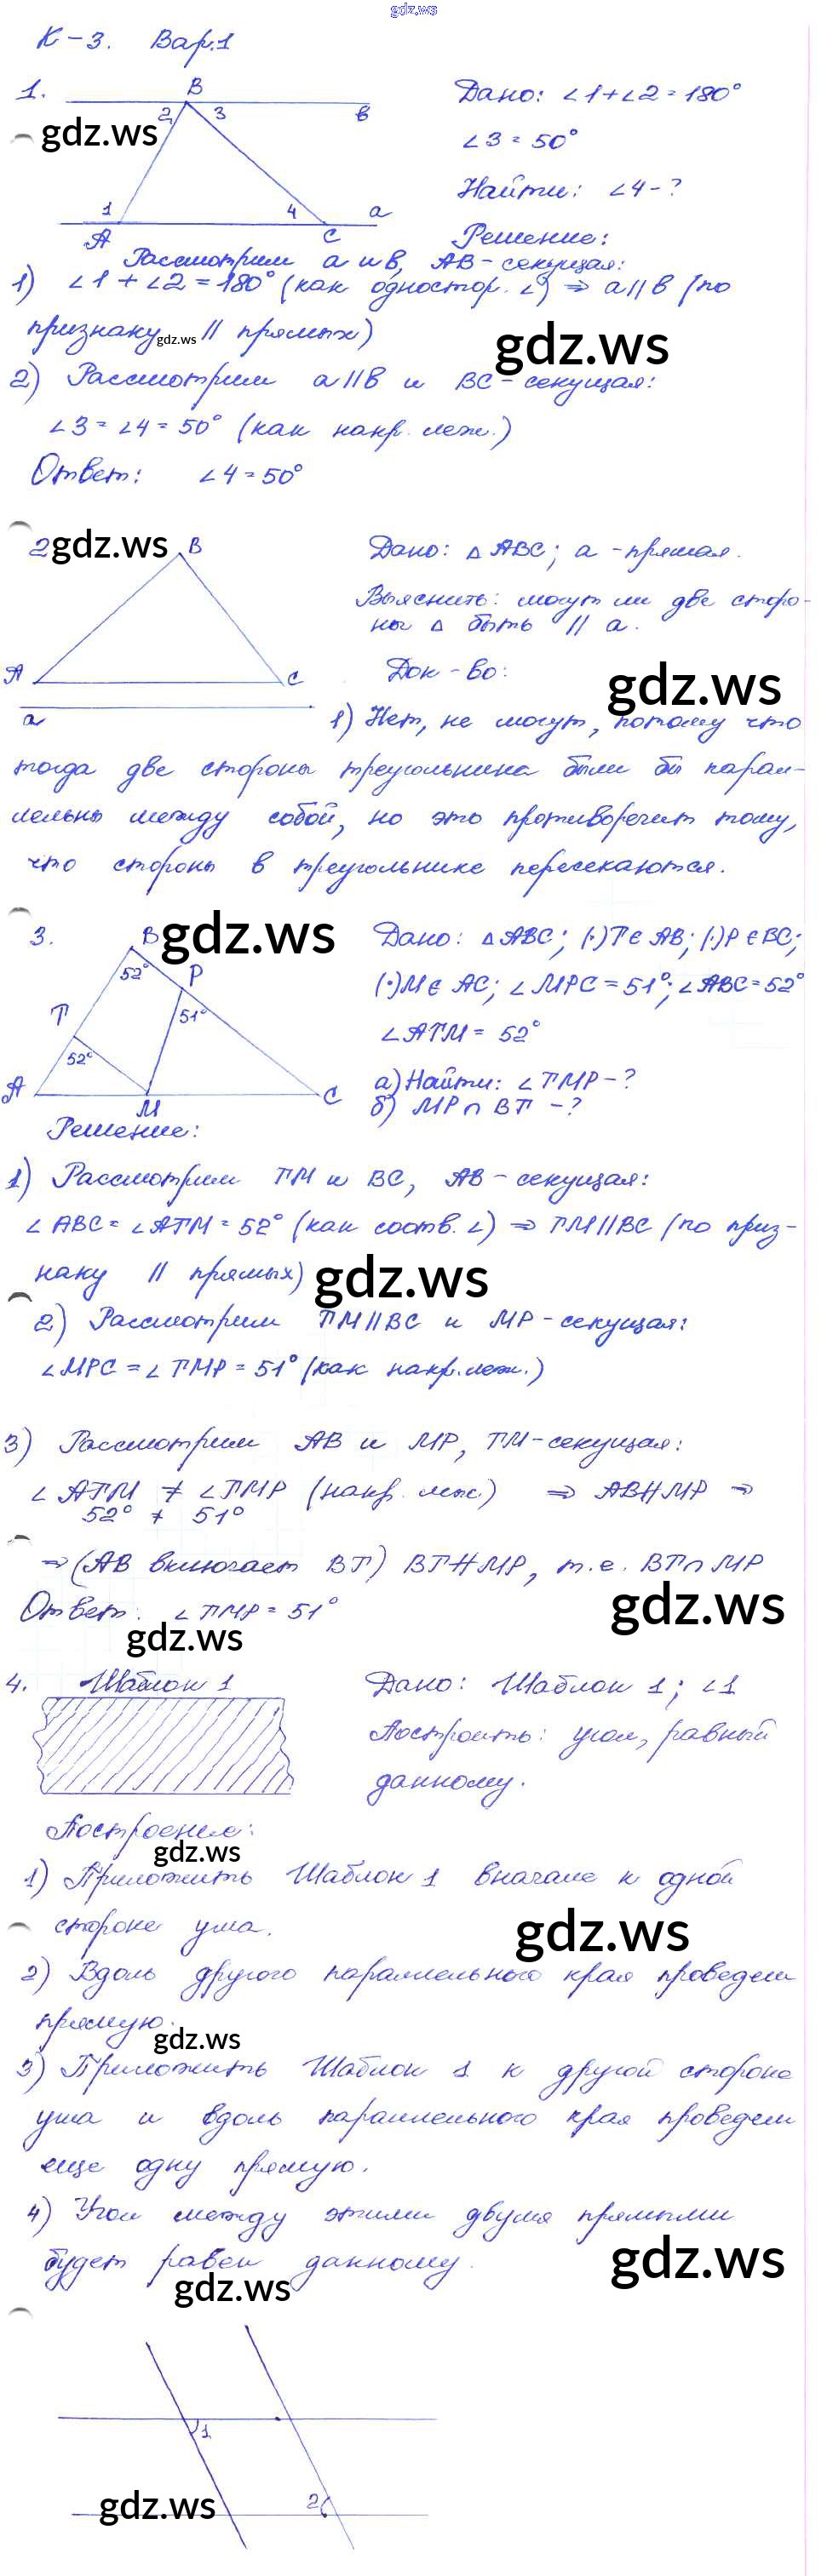 gdz.ws
К-3. Вар.1
1.
B
2 3 в
gdz.ws
1 4 a
A C
Дано: ∠1+∠2=180°
∠3=50°
Найти: ∠4-?
Решение:
Рассмотрим a и в, AB-секущая:
1) ∠1+∠2=180° (как одностор. ∠) ⇒ a∥в (по
признаку gdz.ws ∥ прямых)
gdz.ws
2) Рассмотрим a∥в и BC-секущая:
∠3=∠4=50° (как накр. леж.)
Ответ: ∠4=50°
2 gdz.ws B
A C
a
Дано: △ABC; a-прямая.
Выяснить: могут ли две сторо-
ны △ быть ∥ a.
Док-во:
gdz.ws
1) Нет, не могут, потому что
тогда две стороны треугольника были бы парал-
лельны между собой, но это противоречит тому,
что стороны в треугольнике пересекаются.
3. B gdz.ws
52° P
T 51°
52°
A M C
Дано: △ABC; (·)T∈AB; (·)P∈BC;
(·)M∈AC; ∠MPC=51°; ∠ABC=52°
∠ATM=52°
а) Найти: ∠TMP-?
б) MP∩BT-?
Решение:
1) Рассмотрим TM и BC, AB-секущая:
∠ABC=∠ATM=52° (как соотв. ∠) ⇒ TM∥BC (по приз-
наку ∥ прямых)
gdz.ws
2) Рассмотрим TM∥BC и MP-секущая:
∠MPC=∠TMP=51° (как накр. леж.)
3) Рассмотрим AB и MP, TM-секущая:
∠ATM≠∠TMP (накр. леж.) ⇒ AB∦MP ⇒
52° ≠ 51°
⇒ (AB включает BT) BT∦MP, т.е. BT∩MP
Ответ: ∠TMP=51°
gdz.ws
gdz.ws
4. Шаблон 1
Дано: Шаблон 1; ∠1
Построить: угол, равный
данному.
Построение:
gdz.ws
1) Приложить Шаблон 1 вначале к одной
стороне угла.
gdz.ws
2) Вдоль другого параллельного края проведем
прямую.
gdz.ws
3) Приложить Шаблон 1 к другой стороне
угла и вдоль параллельного края проведем
еще одну прямую.
4) Угол между этими двумя прямыми
будет равен данному.
gdz.ws
gdz.ws
1
2
gdz.ws